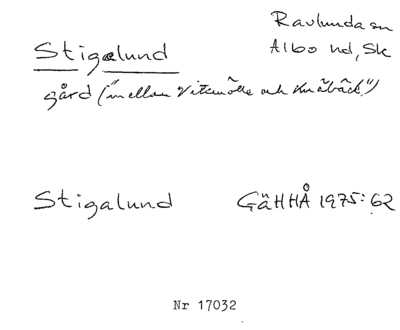 Ravlunda sn
Stigalund
Albo hd, Sk
gård ("mellan Vitemölle och Knäbäck")
Stigalund GäHHÅ 1975:62
Nr 17032